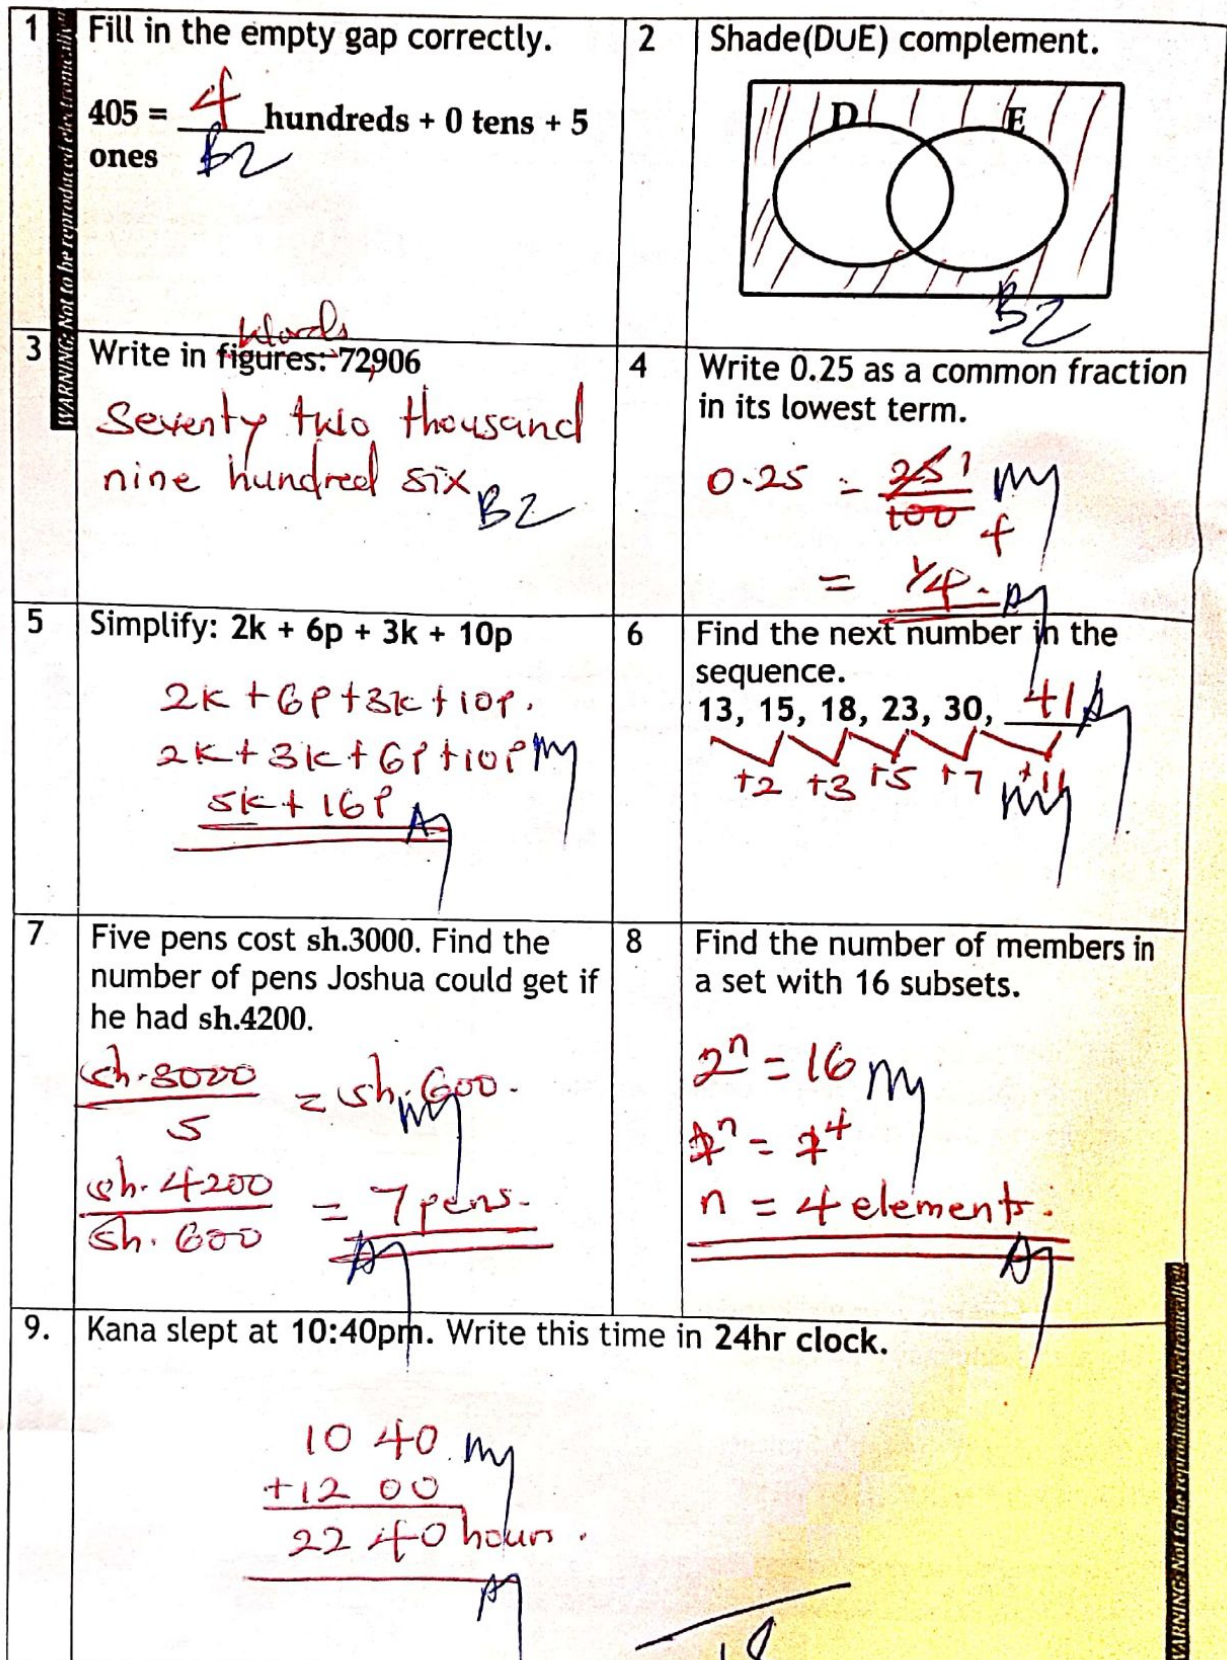 WARNING: Not to be reproduced electronically!!
1 Fill in the empty gap correctly.
405 = 4 hundreds + 0 tens + 5
ones B2
2 Shade(DUE) complement.
D E
B2
3 Write in figures: 72,906
Words
Seventy two thousand
nine hundred six
B2
4 Write 0.25 as a common fraction
in its lowest term.
0.25 = 25 1 M1
100 4
= 1/4. A1
5 Simplify: 2k + 6p + 3k + 10p
2k + 6p + 3k + 10p.
2k + 3k + 6p + 10p M1
5k + 16p A1
6 Find the next number in the
sequence.
13, 15, 18, 23, 30, 41 A1
+2 +3 +5 +7 +11
M1
7 Five pens cost sh.3000. Find the
number of pens Joshua could get if
he had sh.4200.
sh.3000 = sh.600.
5 M1
sh.4200 = 7 pens.
sh.600 A1
8 Find the number of members in
a set with 16 subsets.
2ⁿ = 16 M1
2ⁿ = 2⁴
n = 4 elements.
A1
9. Kana slept at 10:40pm. Write this time in 24hr clock.
10 40 M1
+12 00
22 40 hours.
A1
WARNING: Not to be reproduced electronically!!